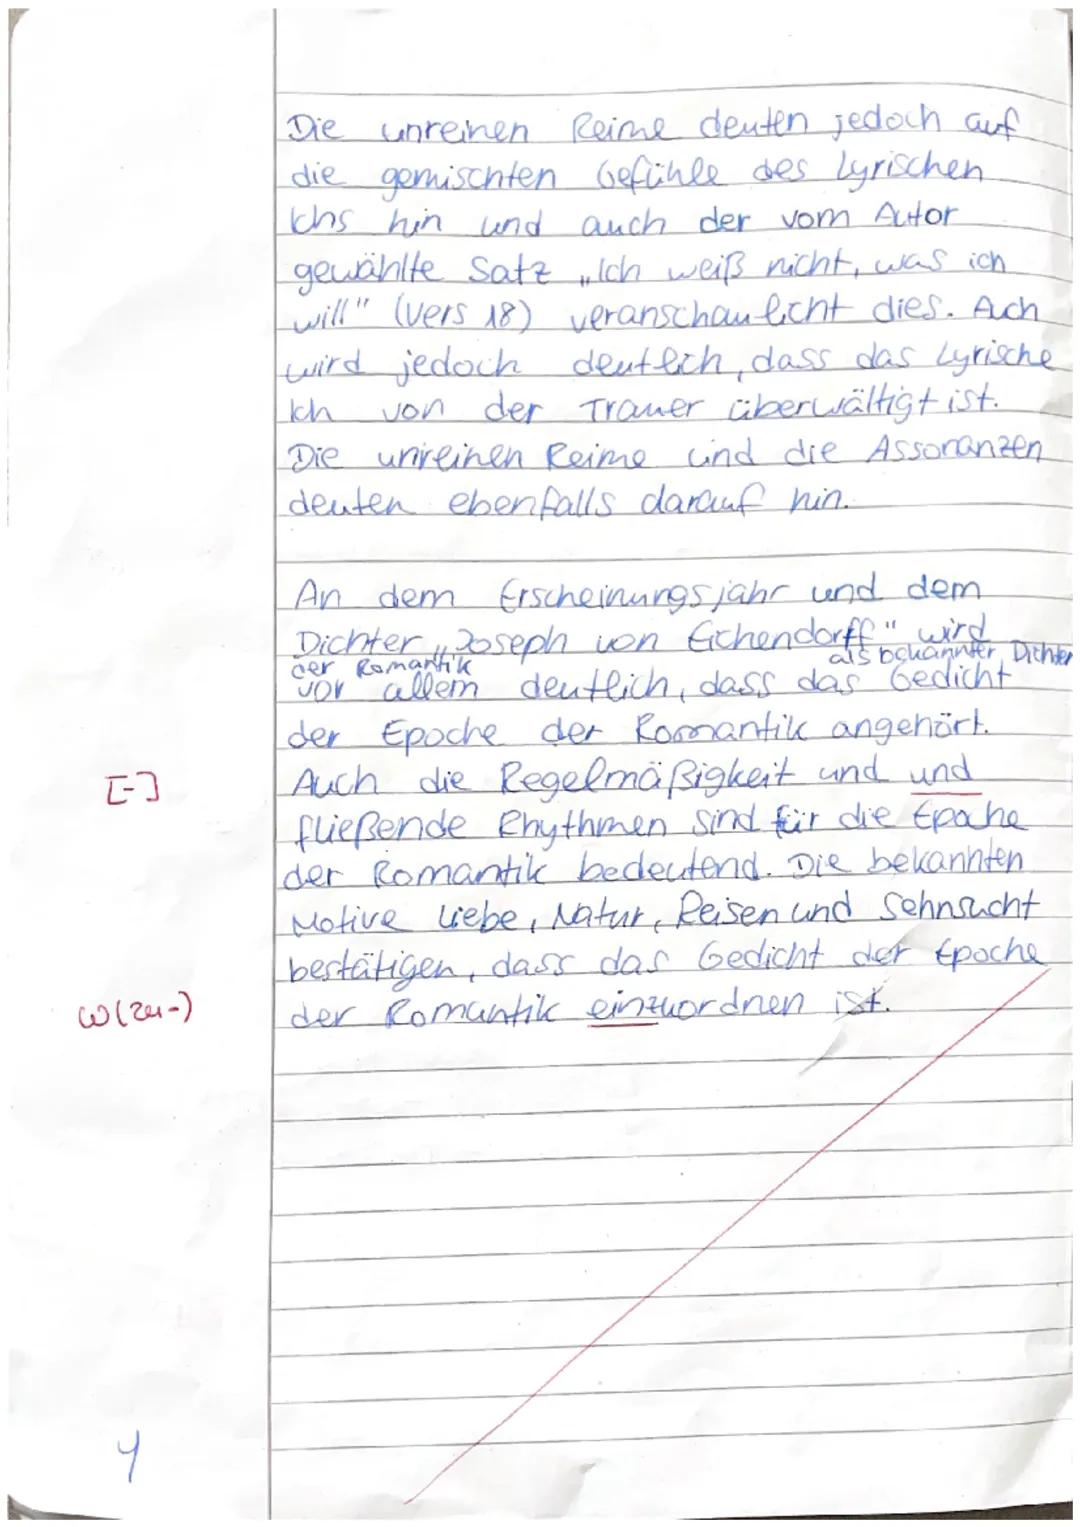 Die unreinen Reime deuten jedoch auf
die gemischten Gefühle des Lyrischen
Ichs hin und auch der vom Autor
gewählte Satz „Ich weiß nicht, was ich
will" (Vers 18) veranschaulicht dies. Auch
wird jedoch deutlich, dass das Lyrische
Ich von der Trauer überwältigt ist.
Die unreinen Reime und die Assonanzen
deuten ebenfalls darauf hin.
An dem Erscheinungsjahr und dem
Dichter „Joseph von Eichendorff" wird
als bekannter Dichter
der Romantik
vor allem deutlich, dass das Gedicht
der Epoche der Romantik angehört.
[-] Auch die Regelmäßigkeit und und
fließende Rhythmen sind für die Epoche
der Romantik bedeutend. Die bekannten
Motive Liebe, Natur, Reisen und Sehnsucht
bestätigen, dass das Gedicht der Epoche
W(zu-) der Romantik einzuordnen ist.
4